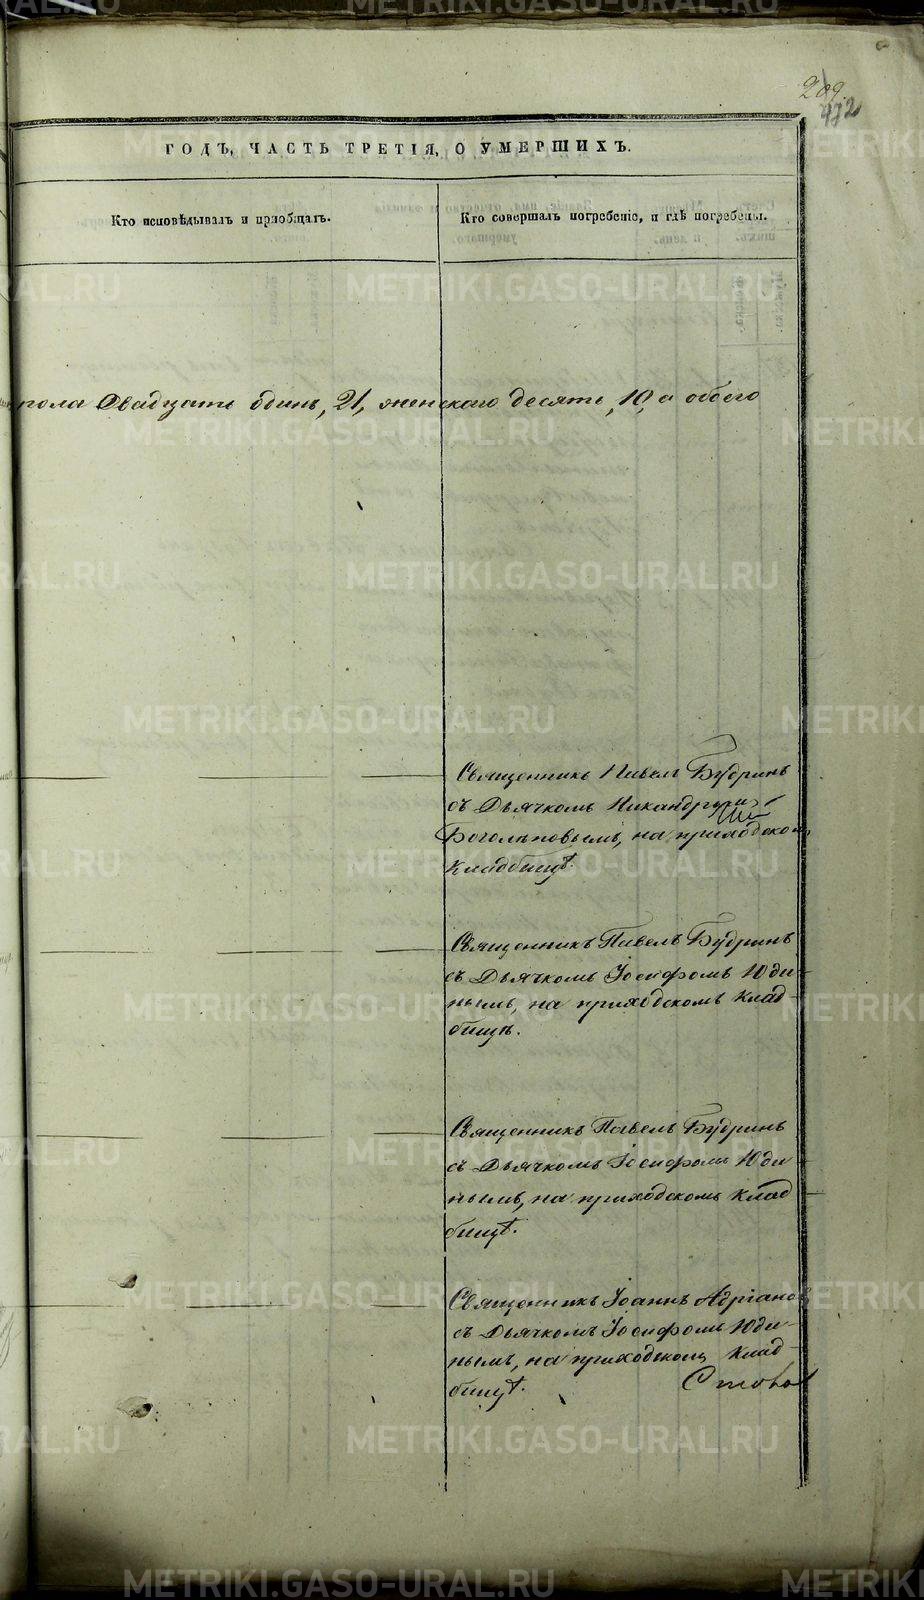 209.
472
ГОДЪ, ЧАСТЬ ТРЕТІЯ, О УМЕРШИХЪ.
Кто исповѣдывалъ и пріобщалъ.
Кто совершалъ погребеніе, и гдѣ погребены.
пола двадцать одинъ, 21, женскаго десять, 10, а обоего
Священникъ Павелъ Будринъ
съ Дьячкомъ
на приходскомъ
кладбищѣ.
Священникъ Павелъ Будринъ
съ Дьячкомъ Іосифомъ Юди-
нымъ, на приходскомъ клад-
бищѣ.
Священникъ Павелъ Будринъ
съ Дьячкомъ Іосифомъ Юди-
нымъ, на приходскомъ клад-
бищѣ.
Священникъ Іоаннъ Адріанов
съ Дьячкомъ Іосифомъ Юди-
нымъ, на приходскомъ клад-
бищѣ.
METRIKI.GASO-URAL.RU